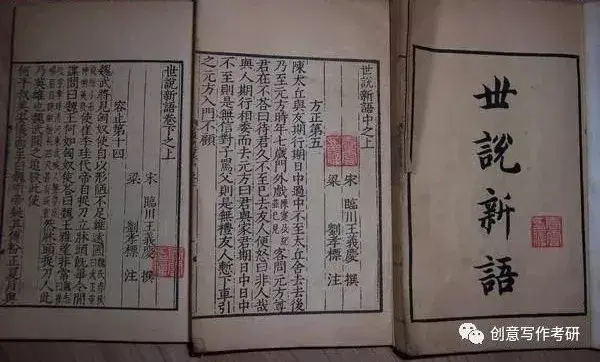 世說新語
世說新語中之上
宋 臨川王義慶 撰
梁 劉孝標 注
方正第五
陳太丘與友期行期日中過中不至太丘舍去去後
乃至元方時年七歲門外戲陳寔及紀並已見客問元方尊
君在不荅曰待君久不至已去友人便怒曰非人哉
與人期行相委而去元方曰君與家君期日中日中
不至則是無信對子罵父則是無禮友人慙下車引
之元方入門不顧
世說新語卷下之上
宋 臨川王義慶 撰
梁 劉孝標 注
容止第十四
魏武將見匈奴使自以形陋不足雄遠國
使崔季珪代帝自捉刀立牀頭旣畢令間
諜問曰魏王何如匈奴使荅曰魏王雅望非常
然牀頭捉刀人此
乃英雄也魏武聞之追殺此使
何平叔美姿儀面至白魏明帝疑其傅粉正夏月與
创意写作考研